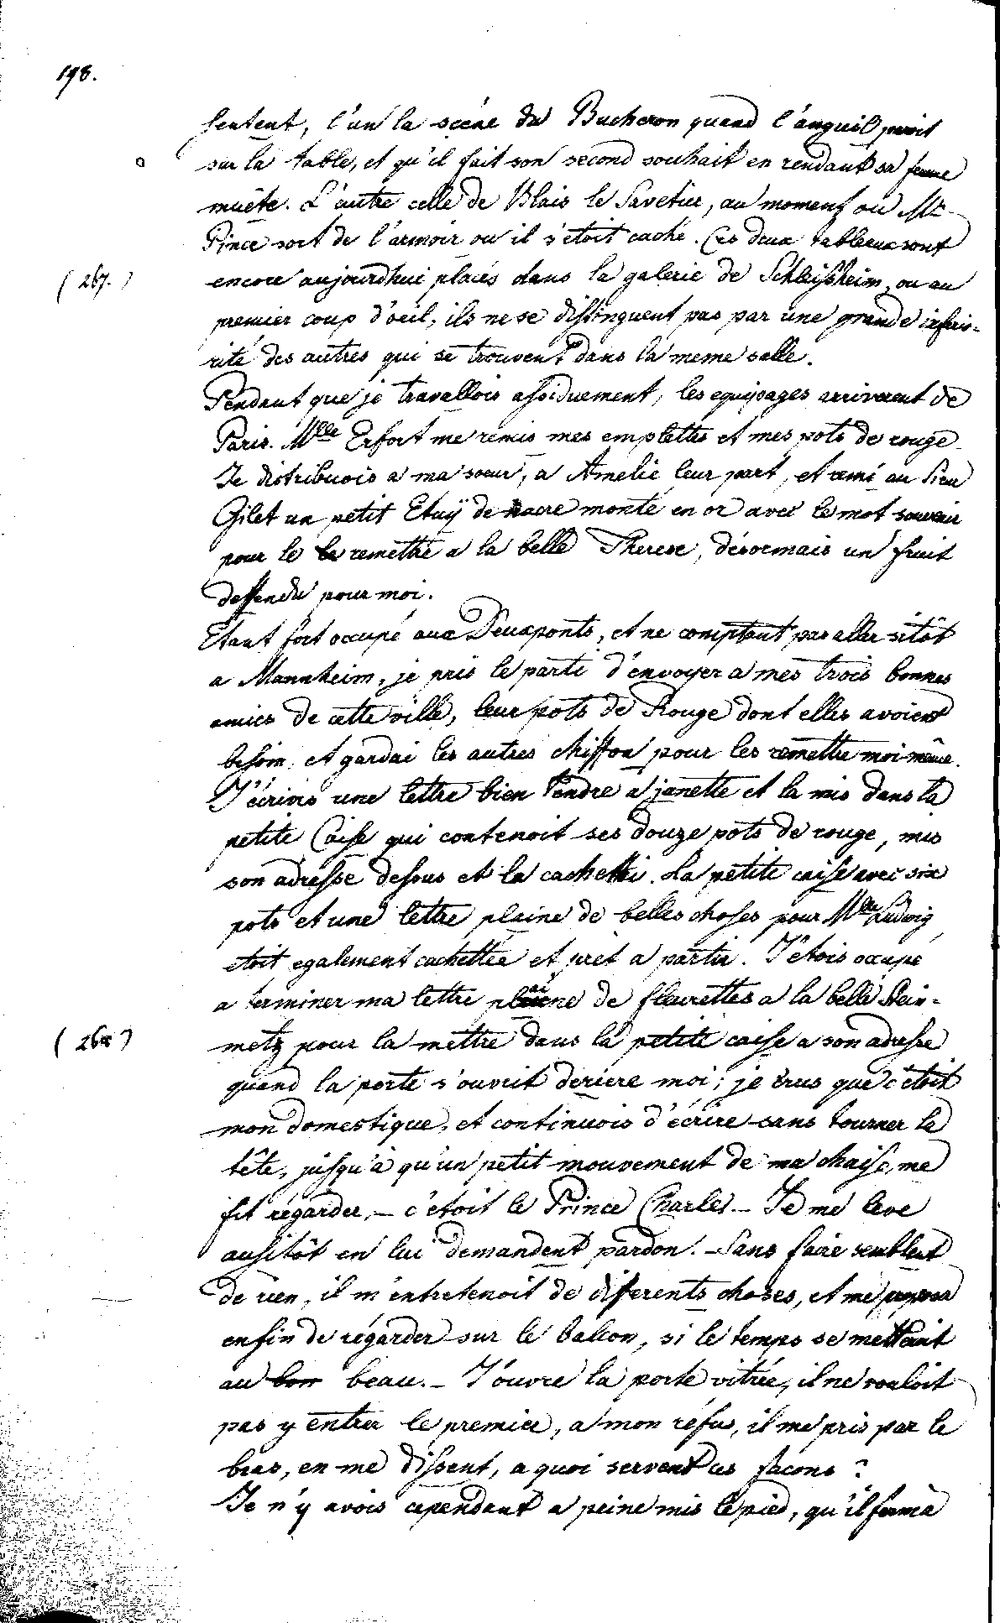 198.
sentent, l'un la scéne du Bucheron quand l'anguil paroit
sur la table, et qu'il fait son second souhait en rendant sa femme
muëte. L'autre celle de Blais le Savetier, au moment ou Mr.
Pince sort de l'armoir ou il s'etoit caché. Ces deux tableaux sont
(267.) encore aujourdhui placés dans la galerie de Schleisheim, ou au
premier coup d'oeil, ils ne se distinguent pas par une grande inferio-
rité des autres qui se trouvent dans la meme salle.
Pendant que je travallois assiduement, les equipages arriverent de
Paris. Mlle Erfort me remis mes emplettes et mes pots de rouge.
Je distribuois a ma soeur, a Amelie leur part, et remi au Sieur
Gilet un petit Etuÿ de nacre monté en or avec le mot souvenir
pour le le remettre a la belle Therese, désormais un fruit
deffendu pour moi.
Etant fort occupé aux Deuxponts, et ne comptant pas aller sitôt
a Mannheim, je pris le parti d'envoyer a mes trois bonnes
amies de cette ville, leur pots de Rouge dont elles avoient
besoin et gardai les autres chiffon pour les remettre moi-même.
J'écrivis une lettre bien tendre a janette et la mis dans la
petite Caisse qui contenoit ses douze pots de rouge, mis
son adresse dessus et la cachetti. La petite caisse avec six
pots et une lettre plaine de belles choses pour Mlle Ludwig
etoit egalement cachettée et pret a partir. J'etois occupé
a terminer ma lettre plaine de fleurettes a la belle Stein-
(268) metz pour la mettre dans la petite caisse a son adresse
quand la porte s'ouvrit deriere moi; je crus que c'etoit
mon domestique, et continuois d'écrire sans tourner la
tête, jusqu'à qu'un petit mouvement de ma chaise, me
fit régarder, – c'etoit le Prince Charles – Je me leve
ausitôt en lui demandent pardon. – Sans faire semblent
de rien, il m'entretenoit de diferents choses, et me proposa
enfin de régarder sur le balcon, si le temps se mettroit
au bon beau. – J'ouvre la porte vitrée, il ne vouloit
pas y entrer le premier, a mon réfus, il me pris par le
bras, en me dissent, a quoi servent ces facons ?
Je n'y avois cependant a peine mis le pied, qu'il ferma